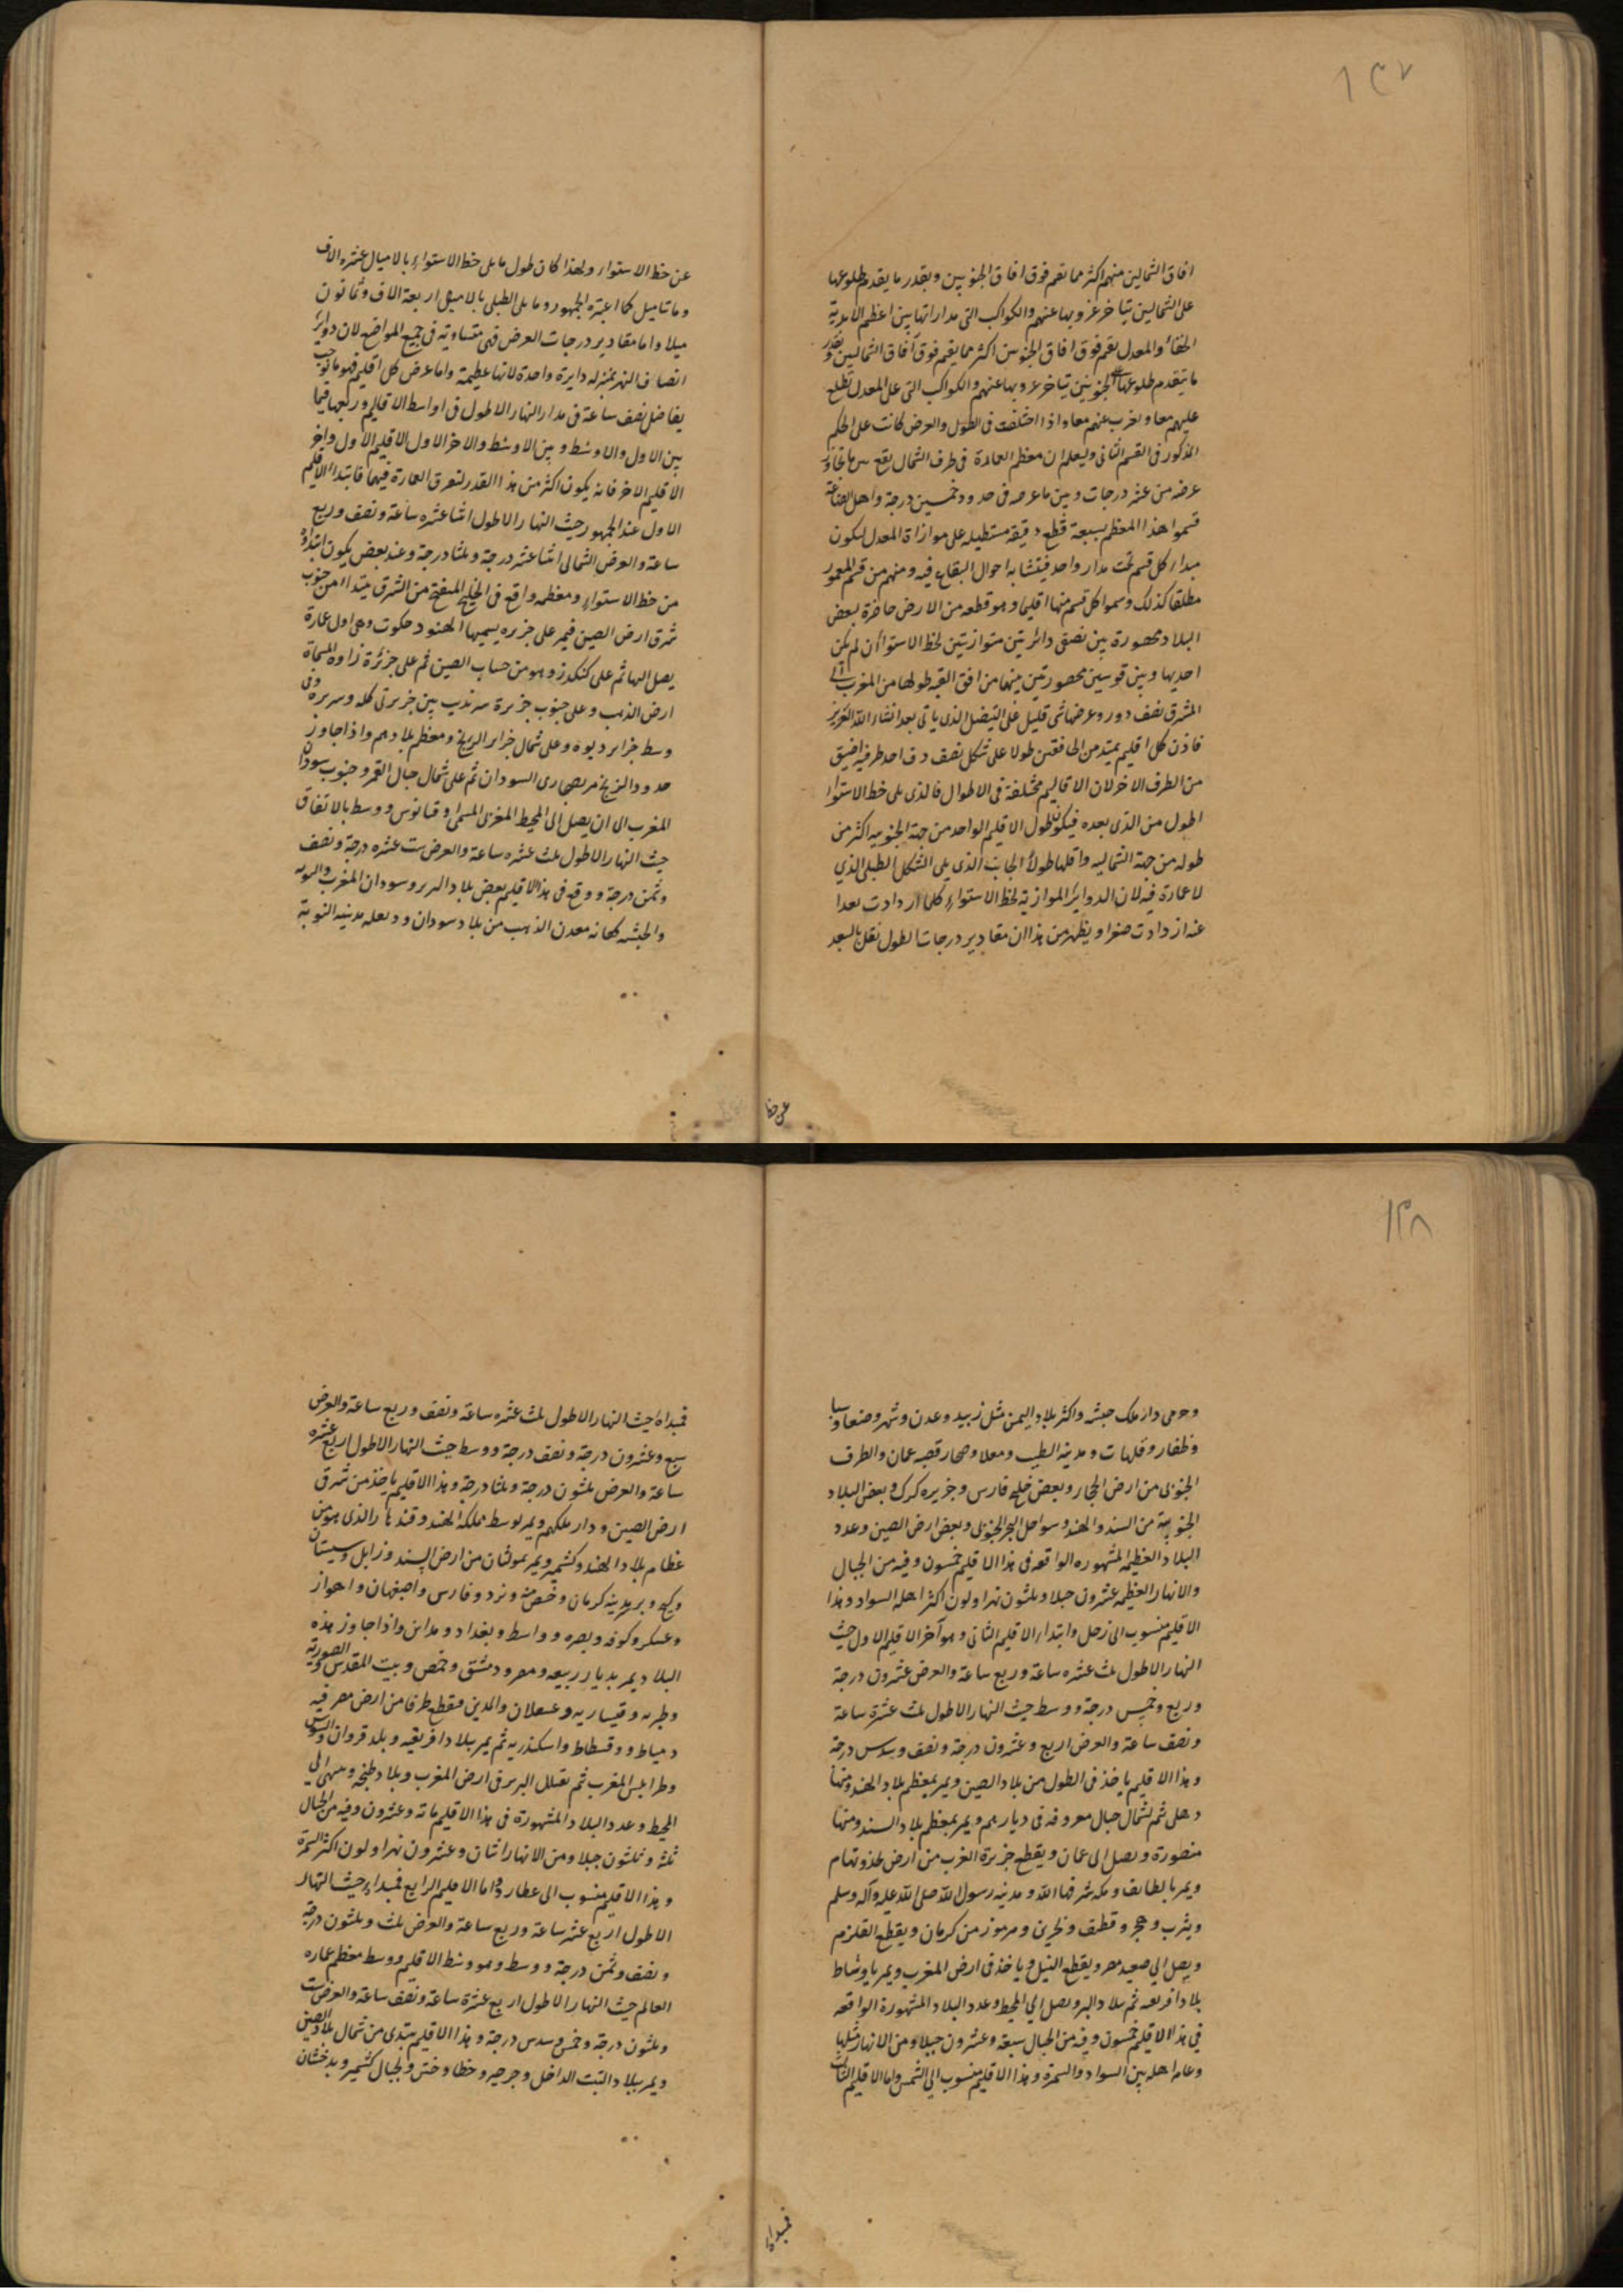 ١٣٧
افاق الشمالين منهم اكثر مما تقم فوق افاق الجنوبين وبقدر ما يقدم طلوعها
على الشمالين يتاخر غروبها عنهم والكواكب التى مداراتها بين اعظم الابدية
الخفاء والمعدل يقم فوق افاق الجنوبين اكثر مما يقم فوق آفاق الشمالين وبقدر
ما يتقدم طلوعها على الجنوبين يتاخر غروبها عنهم والكواكب التى على المعدل تطلع
عليهم معا وتغرب عنهم معا واذا اختلفت فى الطول والعرض كانت على الحكم
المذكور فى القسم الثانى وليعلم ان معظم العمارة فى طرف الشمال يقع بين ما تجاوز
عرضه من عشر درجات وبين ما عرضه فى حدود خمسين درجة واهل الصناعة
قسموا هذا المعظم بسبعة قطع دقيقة مستطيله على موازاة المعدل ليكون
مبداء كل قسم تحت مدار واحد فيتشابه احوال البقاع فيه ومنهم من قسم المعمور
مطلقا كذلك وسموا كل قسم منها اقليما وهو قطعه من الارض حاضرة بعض
البلاد محصورة بين نصفى دائرتين متوازيتين لخط الاستواء ان لم يكن
احديها وبين قوسين محصورتين بينهما من افق القبه طولها من المغرب الى
المشرق نصف دور وعرضها شى قليل على التفضيل الذى ياتى بعد انشاء الله العزيز
فاذن كل اقليم يمتد من الخافقين طولا على شكل نصف دف احد طرفيه اضيق
من الطرف الاخر لان الاقاليم مختلفة فى الاطوال فالذى يلى خط الاستواء
اطول من الذى بعده فيكون طول الاقليم الواحد من جهة الجنوبيه اكثر من
طوله من جهة الشماليه واقلها طولا الجانب الذى يلى الشكل الطبلى الذي
لا عمارة فيه لان الدواير الموازية لخط الاستواء كلما ازدادت بعدا
عنه ازدادت صغرا ويظهر من هذا ان مقادير درجات الطول تقل بالبعد
عن خط
عن خط الاستواء ولهذا كان طول ما يلى خط الاستواء بالاميال عشره الاف
وماتا ميل كما اعتبره الجمهور وما يلى الطبلى بالاميال اربعة الاف وثمانون
ميلا واما مقادير درجات العرض فهى متساوية فى جميع المواضع لان دواير
انصاف النهر بمنزله دايرة واحدة لانها عظيمة واما عرض كل اقليم فهو ما يوجب
تفاضل نصف ساعة فى مدار النهار الاطول فى اواسط الاقاليم وربعها فيما
بين الاول والاوسط وبين الاوسط والاخر الا اول الاقليم الاول واخر
الاقليم الاخر فانه يكون اكثر من هذا القدر لتفرق العمارة فيهما فابتداء الاقليم
الاول عند الجمهور حيث النهار الاطول اثنا عشره ساعة ونصف وربع
ساعة والعرض الشمالى اثنا عشره درجة وثلثا درجة وعند بعض يكون ابتداؤه
من خط الاستواء ومعظمه واقع فى الخليج المنفتح من الشرق يبتداء من جنوب
شرق ارض الصين فيمر على جزيره يسميها الهنود حكوت وهى اول عمارة
يصل اليها ثم على كنكدز وهو من حساب الصين ثم على جزئرة زاوه المسماة
ارض الذهب وعلى جنوب جزيرة سرنديب بين جزيرتى كله وسريره وفى
وسط جزاير ديوه وعلى شمال جزاير الزنج ومعظم بلادهم واذا جاوز
حدود الزنج مر بصحارى السودان ثم على شمال جبال القمر وجنوب سودان
المغرب الى ان يصل الى المحيط المغربى المسمى اوقيانوس ووسط بالاتفاق
حيث النهار الاطول ثلث عشره ساعة والعرض ست عشره درجة ونصف
وثمن درجة ووقع فى هذا الاقليم بعض بلاد البربر وسودان المغرب والنوبه
والحبشه كعانه معدن الذهب من بلاد سودان ودنقله مدينه النوبة
١٣٨
وجرمى دار ملك حبشه واكثر بلاد اليمن مثل زبيد وعدن وشهر وصنعا وسبا
وظفار وقلهات ومدينه الطيب ومعلا وصحار قصبه عمان والطرف
الجنوبى من ارض الحجاز وبعض خليج فارس وجزيره كرك وبعض البلاد
الجنوبية من السند والهند وسواحل البحر الجنوبى وبعض ارض الصين وعدد
البلاد العظيمه المشهوره الواقعه فى هذا الاقليم خمسون وفيه من الجبال
والانهار العظيمه عشرون جبلا وثلثون نهرا ولون اكثر اهله السواد وهذا
الاقليم منسوب الى زحل وابتداء الاقليم الثانى وهو آخر الاقليم الاول حيث
النهار الاطول ثلث عشره ساعة وربع ساعة والعرض عشرون درجة
وربع وخمس درجة ووسط حيث النهار الاطول ثلث عشرة ساعة
ونصف ساعة والعرض اربع وعشرون درجة ونصف وسدس درجة
وهذا الاقليم ياخذ فى الطول من بلاد الصين ويمر بمعظم بلاد الهند ومنها
دهلى ثم لشمال جبال معروفه فى ديارهم ويمر بمعظم بلاد السند ومنها
منصورة ويصل الى عمان ويقطع جزيرة العرب من ارض نجد وتهامه
ويمر بالطايف ومكه شرفها الله ومدينه رسول الله صلى الله عليه وآله وسلم
ويثرب وهجر وقطيف وبحرين وهرموز من كرمان ويقطع القلزم
ويصل الى صعيد مصر ويقطع النيل وياخذ فى ارض المغرب ويمر باوساط
بلاد افريقه ثم ببلاد البربر ويصل الى المحيط وعدد البلاد المشهورة الواقعه
فى هذا الاقليم خمسون وفيه من الجبال سبعة وعشرون جبلا ومن الانهار مثلها
وعامه اهله بين السواد والسمرة وهذا الاقليم منسوب الى الشمس واما الاقليم الثالث
فمبداه
فمبداه حيث النهار الاطول ثلث عشره ساعة ونصف وربع ساعة والعرض
سبع وعشرون درجة ونصف درجة ووسط حيث النهار الاطول اربع عشره
ساعة والعرض ثلثون درجة وثلثا درجة وهذا الاقليم ياخذ من شرق
ارض الصين ودار ملكهم ويمر لوسط مملكه الهند وقندهار الذى هو من
عظام بلاد الهند وكشمير ويمر بمولتان من ارض السند وزابل وسيستان
وكيج وبر مدينه كرمان ويزد وفارس واصفهان واهواز
وعسكر وكوفه وبصره وواسط وبغداد ومداين واذا جاوز هذه
البلاد يمر بديار ربيعه ومصر ودمشق وحمص وبيت المقدس وصورية
وطبريه وقيساريه وعسقلان والمدين ويقطع طرفا من ارض مصر فيه
دمياط وفسطاط واسكندريه ثم يمر ببلاد افريقيه وبلد قروان والسوس
وطرابلس المغرب ثم بقبايل البربر فى ارض المغرب وبلاد طنجه وينتهى الى
المحيط وعدد البلاد المشهورة فى هذا الاقليم ماته وعشرون وفيه من الجبال
ثلثه وثلثون جبلا ومن الانهار اثنان وعشرون نهرا ولون اكثر السمرة
وهذا الاقليم منسوب الى عطارد واما الاقليم الرابع فمبداء حيث النهار
الاطول اربع عشر ساعة وربع ساعة والعرض ثلث وثلثون درجة
ونصف وثمن درجة ووسط وهو وسط الاقليم ووسط معظم عماره
العالم حيث النهار الاطول اربع عشرة ساعة ونصف ساعة والعرض ست
وثلثون درجة وخمس وسدس درجة وهذا الاقليم يبتدى من شمال بلاد الصين
ويمر ببلاد التبت الداخل وجرجير وخطا وختن ولجبال كشمير وبدخشان